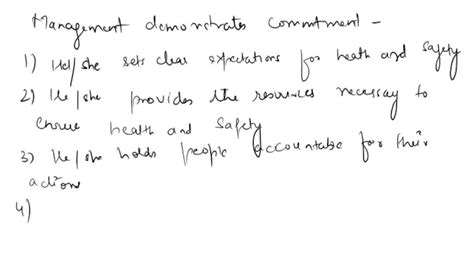 Management demonstrates commitment -
1) He/she sets clear expectations for heath and safety
2) He/she provides the resources necessary to
ensure health and safety
3) He/she holds people accountable for their
actions
4)